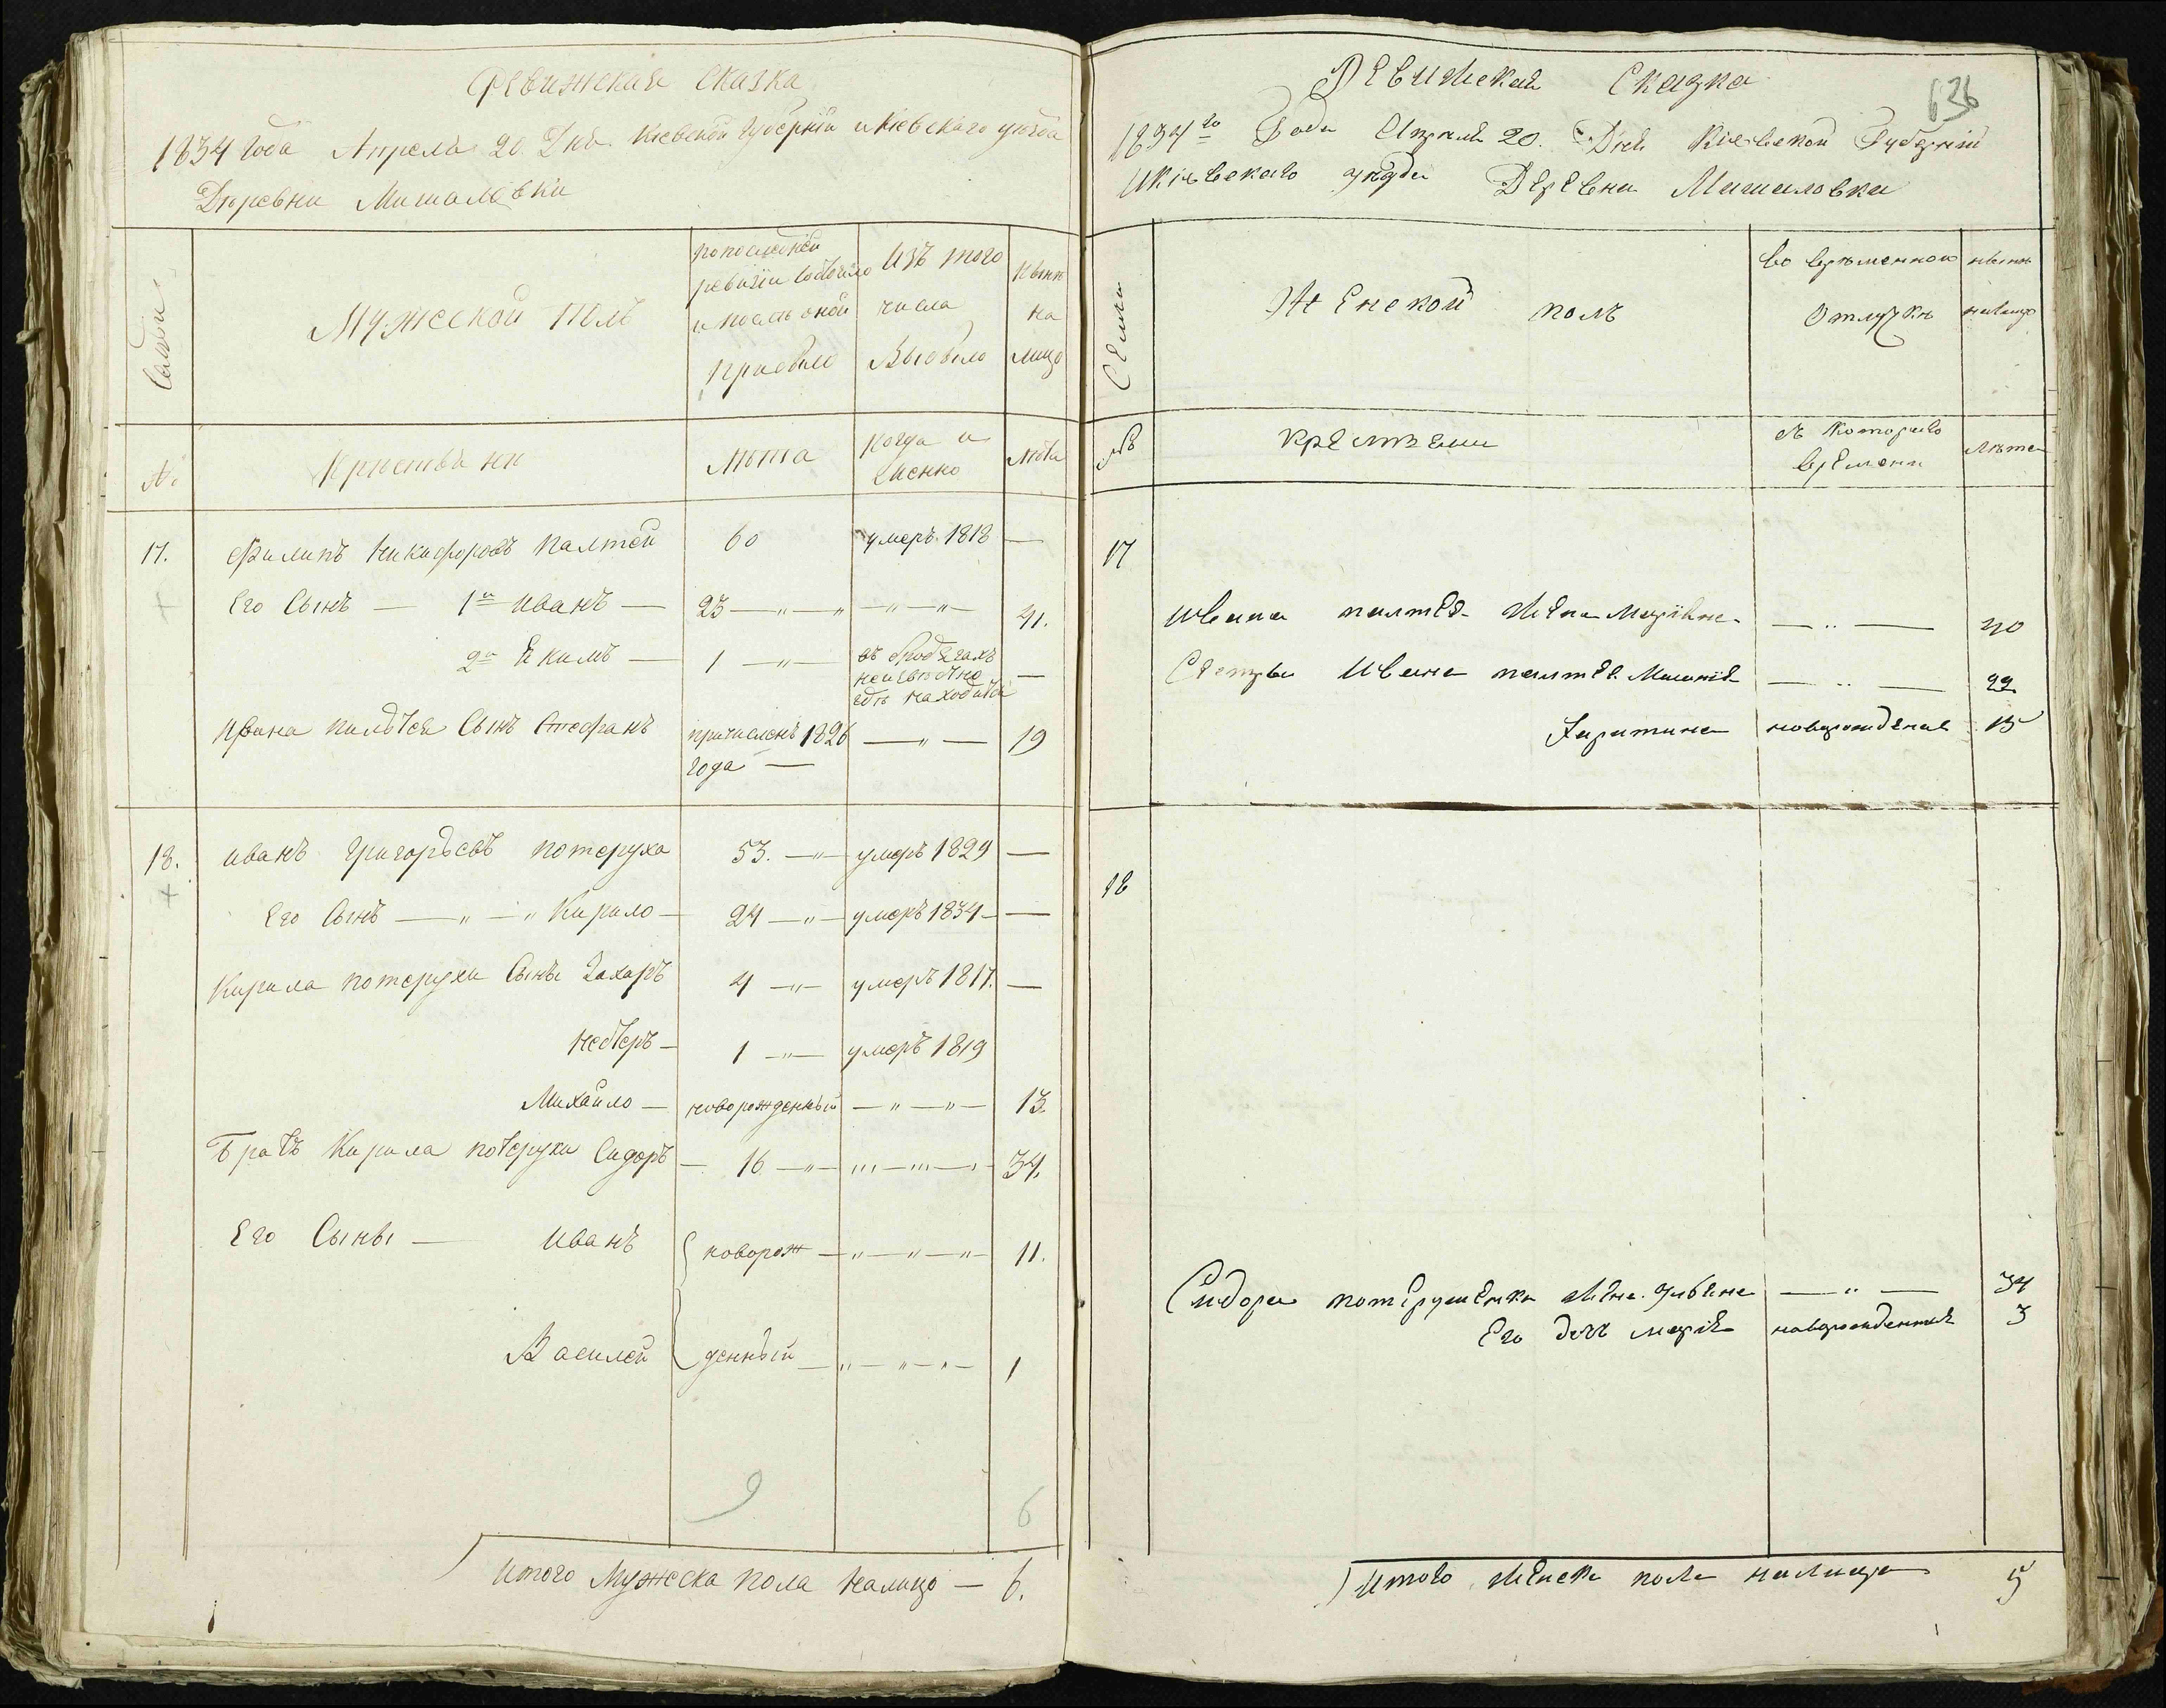 Ревижская сказка
1834 года Апреля 20 Дня Киевской губернии и Киевского уезда
Деревни Мишаловки
Семьи
Мужеской полъ
по последней ревизии состояло и после оной прибыло
Изъ того числа Выбыло
ныне на лицо
№
Кристьяни
Лета
Когда именно
Лета
17. Филипъ Никифоровъ Палтей 60 умеръ 1818 —
Его Сынъ — 1й Иванъ — 23 — „ — „ — „ — „ — 41.
2й Якимъ — 1 — „ — въ бродягахъ неизвестно где находится —
Ивана палтея Сынъ Стефанъ причисленъ 1826 года — — „ — 19
18. иванъ Григорьевъ потеруха 53. — „ — умеръ 1829 —
Его Сынъ — „ — „ Кирило — 24 — „ — умеръ 1834 — —
Кирила потерухи Сыны Захаръ 4 — „ — умеръ 1817. —
Несторъ — 1 — „ — умеръ 1819
Михайло — новорожденный — „ — „ — 13
Братъ Кирила потерухи Сидоръ — 16 — „ — „ — „ — 34.
Его Сыны — иванъ новорож — „ — „ — „ — 11.
Василей денный — „ — „ — „ — 1
9 6
итого Мужеска пола налицо — 6.
636
Ревижская Сказка
1834го Года Апреля 20. Дня Киевской Губернии
И Киевского уезда Деревни Мишаловки
Семьи
Женской полъ
во временной отлучке
ныне налицо
№
крестяни
съ которого времени
Лета
17
Ивана палтея жена Марияна — „ — 40
Сестры Ивана палтея Маланія — „ — 22
Харитина новорожденая 15
18
Сидора потерушенка жена Ульяна — „ — 34
Его дочь марія новорожденная 3
Итого женска пола налицо 5